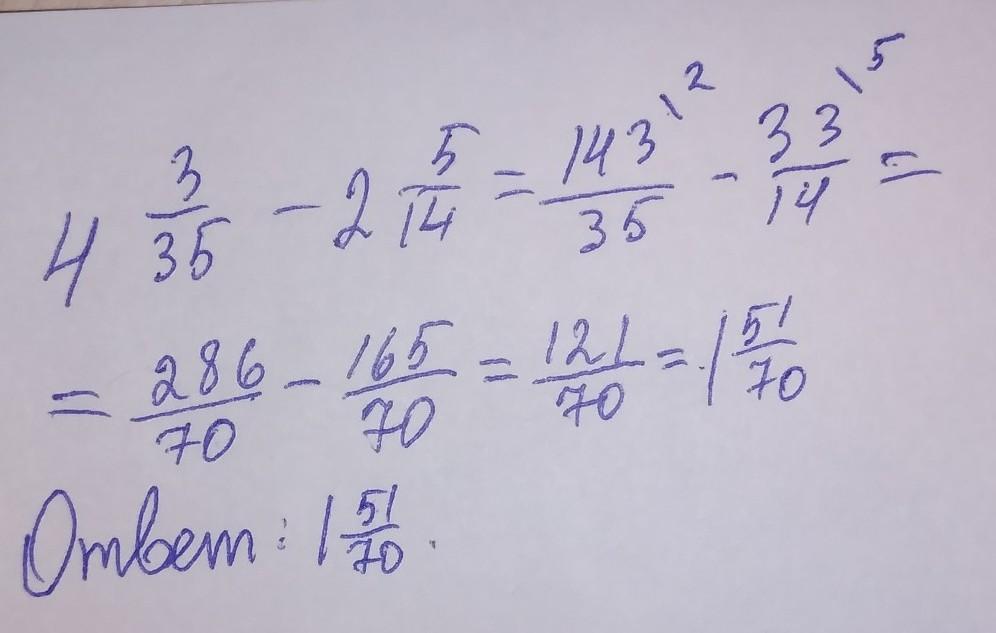 4 3/35 - 2 5/14 = 143/35 \2 - 33/14 \5 =
= 286/70 - 165/70 = 121/70 = 1 51/70
Ответ: 1 51/70.